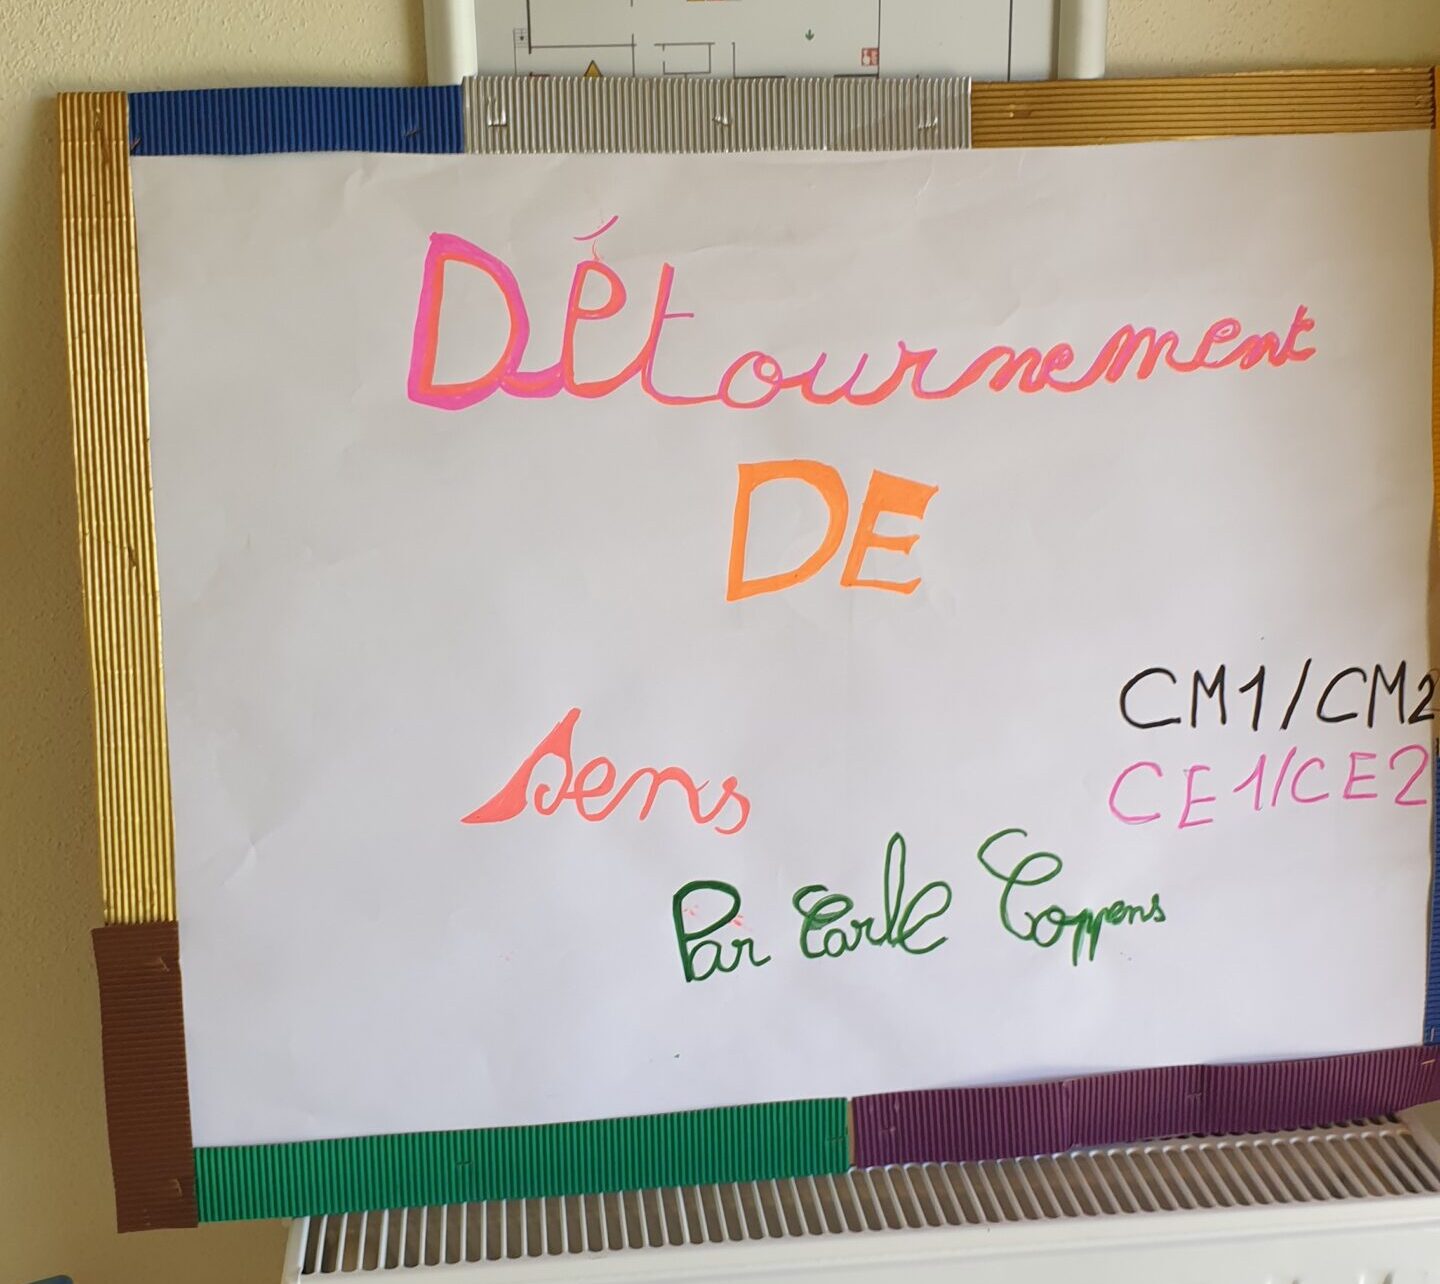 Détournement
DE
sens
CM1/CM2
CE1/CE2
Par Carle Coppens